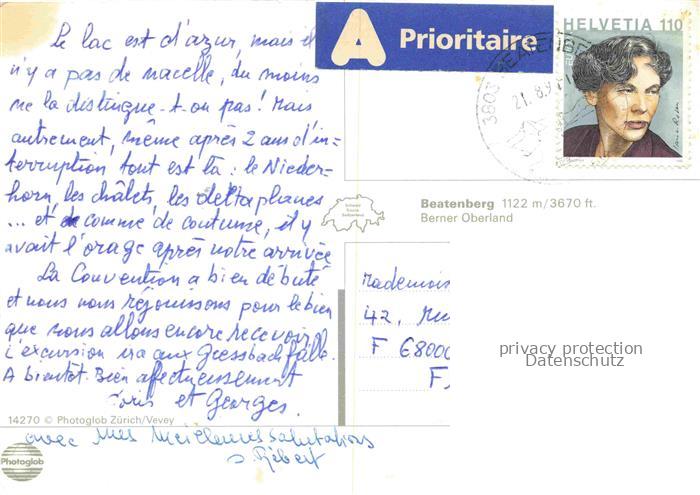 Le lac est d'azur, mais il
n'y a pas de nacelle, du moins
ne la distingue-t-on pas! Mais
autrement, même après 2 ans d'in=
terruption, tout est là : le Nieder=
horn, les châlets, les deltaplanes
... et comme de coutume, il y
avait l'orage après notre arrivée
La Convention a bien débuté
et nous nous réjouissons pour le bien
que nous allons encore recevoir.
L'excursion ira aux Giessbachfälle.
A bientôt. Bien affectueusement
et Georges.
avec mes meilleures salutations
A Prioritaire
HELVETIA 110
3803 BEATENBE
21. 8.9
Beatenberg 1122 m/3670 ft.
Berner Oberland
Mademois
42, Rue
F 68000
F
privacy protection
Datenschutz
14270 © Photoglob Zürich/Vevey
Photoglob